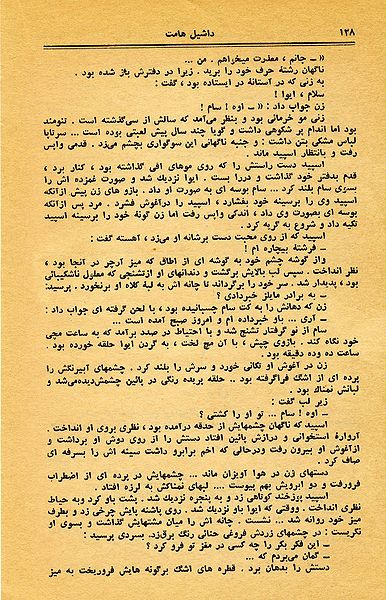 ۱۲۸ داشیل هامت
« ــ جانم ، معذرت میخواهم . من ...
ناگهان رشتهٔ حرف خود را برید . زیرا در دفترش باز شده بود .
به زنی که در آستانهٔ در ایستاده بود ، گفت :
سلام ، ایوا !
زن جواب داد : « ــ اوه ! سام !
زنی مو خرمائی بود و بنظر می‌آمد که سالش از سی‌گذشته است . تنومند
بود اما اندام پر شکوهی داشت و گویا چند سال پیش لعبتی بوده است ... سرتاپا
لباس مشکی بتن داشت : و جنبهٔ ناگهانی این سوگواری بچشم میزد . قدمی واپس
رفت و بانتظار اسپید ماند .
اسپید دست راستش را که روی موهای افی گذاشته بود ، کنار برد ،
قدم بدفتر خود گذاشت و دررا بست . ایوا نزدیك شد و صورت غمزده اش را
بسوی سام بلند کرد ... سام بوسه ای به صورت او داد . بازو های زن پیش ازآنکه
اسپید وی را بسینهٔ خود بفشارد ، اسپید را درآغوش فشرد . مرد پس ازآنکه
بوسه ای بصورت وی داد ، اندکی واپس رفت اما زن گونهٔ خود را برسینه اسپید
تکیه داد و شروع به گریه کرد .
اسپید که از روی محبت دست برشانه او می‌زد ، آهسته گفت :
ــ فرشتهٔ بیچاره ام !
واز گوشه چشم خود به گوشه ای از اطاق که میز آرچر در آنجا بود ،
نظر انداخت . سپس لب بالایش برگشت و دندانهای او ازتشنجی که معلول ناشکیبائی
بود ، پدیدار شد . سر خود را برگرداند تا چانه اش به لبهٔ کلاه او برنخورد . پرسید:
ــ به برادر مایلز خبردادی ؟
زن که دهانش را به کت سام چسبانیده بود ، با لحن گرفته ای جواب داد :
ــ آری ... باو خبرداده ام و امروز صبح آمده است ...
سام از نو گرفتار تشنج شد و با احتیاط در صدد برآمد که به ساعت مچی
خود نگاه کند . بازوی چپش ، با آن مچ لخت ، به گردن ایوا حلقه خورده بود .
ساعت ده وده دقیقه بود .
زن در آغوش او تکانی خورد و سرش را بلند کرد . چشمهای آبیرنگش را
پرده ای از اشك فراگرفته بود .. حلقه پریده رنگی در پائین چشمش‌دیده‌می‌شد و
لبانش نمناك بود .
زیر لب گفت :
ــ اوه ! سام ... تو او را کشتی ؟
اسپید که ناگهان چشمهایش از حدقه درآمده بود ، نظری بروی او انداخت .
آروارهٔ استخوانی و درازش پائین افتاد دستش را از روی دوش او برداشت و
ازآغوش او بیرون رفت ودرحالی که اخم برابرو داشت سینه اش را بسرفه ای
صاف کرد .
دستهای زن در هوا آویزان ماند ... چشمهایش در پرده ای از اضطراب
فرورفت و دو ابرویش بهم پیوست .... لبهای نمناکش به لرزه افتاد .
اسپید پوزخند کوتاهی زد و به پنجره نزدیك شد . پشت باو کرد وبه حیاط
نظری انداخت . ووقتی که ایوا باو نزدیك شد . روی پاشنه پایش چرخی زد و بطرف
میز خود روانه شد ... نشست . چانه اش را میان مشتهایش گذاشت و بسوی او
نگریست : در چشمهای زردش فروغی حنائی رنگ برق‌زد. بسردی پرسید :
ــ این فکر بکر را چه کسی در مغز تو فرو کرد ؟
ــ گمان می‌بردم که ...
دستش را بدهان برد . قطره های اشك برگونه هایش فروریخت به میز